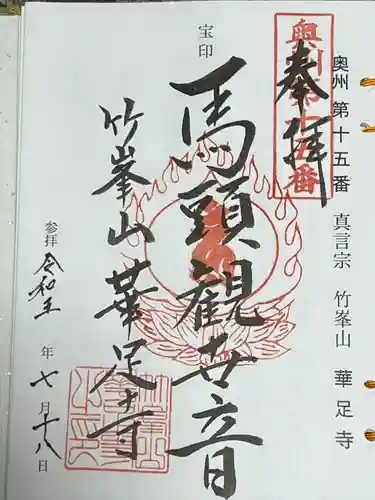 奥州 第十五番 真言宗 竹峯山 華足寺
奥州第十五番
奉拝
宝印
馬頭観世音
竹峯山 華足寺
参拝 令和五年七月十八日